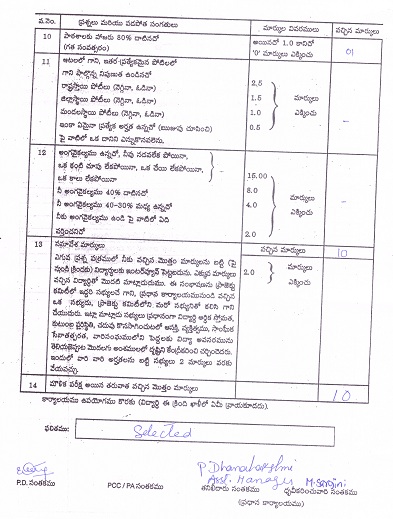 వ.నెం. ప్రశ్నలు మరియు పరిశోధ సంగతులు మార్కుల వివరములు వచ్చిన మార్కులు
10 పాఠశాలకు హాజరు 80% దాటినదో అయినచో 1.0 కానిచో 01
(గత సంవత్సరం) '0' మార్కులు ఎక్కించు
11 ఆటలలో గాని, ఇతర ప్రత్యేకమైన పోటీలలో
గాని పాల్గొన్న నిపుణత ఉండినచో
రాష్ట్రస్థాయి పోటీలు (నెగ్గినా, ఓడినా) 2.5
జిల్లాస్థాయి పోటీలు (నెగ్గినా, ఓడినా) 1.5 మార్కులు
మండలస్థాయి పోటీలు (నెగ్గినా, ఓడినా) 1.0 ఎక్కించు
ఇంకా ఏమైనా ప్రత్యేక అర్హత ఉన్నచో (ఋజువు చూపించి) 0.5
పై వాటిలో ఒక దానిని ఎన్నుకొనవలెను.
12 అంగవైకల్యము ఉన్నచో, నీవు నడవలేక పోయినా,
ఒక కంటి చూపు లేకపోయినా, ఒక చేయి లేకపోయినా,
ఒక కాలు లేకపోయినా 15.00
నీ అంగవైకల్యము 40% దాటినచో 8.0 మార్కులు
నీ అంగవైకల్యము 40-30% మధ్య ఉన్నచో 4.0 ఎక్కించు
నీకు అంగవైకల్యము ఉండి పై వాటిలో ఏది
వర్తించనిచో 2.0
13 సమావేశ మార్కులు వచ్చిన మార్కులు 10
ఎగువ ప్రశ్న పత్రములో నీకు వచ్చిన మొత్తం మార్కులను బట్టి (పై
నుండి క్రిందకు) విద్యార్థులకు ఇంటర్వ్యూకై పెట్టబడును. ఎక్కువ మార్కులు 2.0 మార్కులు
వచ్చిన విద్యార్థితో మొదట మాట్లాడుదురు. ఈ సంభాషణను ప్రాజెక్టు ఎక్కించు
కమిటీలో ఇద్దరి సభ్యులచే గాని, ప్రధాన కార్యాలయమునుండి వచ్చిన
ఒక సభ్యుడు, ప్రాజెక్టు కమిటీలోని మరో సభ్యునితో కలిసి గాని
చేయుదురు. ఇట్లా మాట్లాడు సభ్యులు ప్రధానంగా విద్యార్థి ఆర్థిక స్తోమత,
కుటుంబ స్థితి, చదువు కొనసాగించుటలో ఆసక్తి, వ్యక్తిత్వము, సాంఘిక
సేవాతత్పరత, వారినుంచి పెద్దలకు విద్యా అవసరమును
తెలియజెప్పుట మొదలగు అంశములలో దృష్టిని కేంద్రీకరించి చర్చించెదరు.
ఇందులో వారి వారి అర్హతలను బట్టి సభ్యులు 2 మార్కులు వరకు
వేయవచ్చు.
14 మౌళిక పరీక్ష అయిన తరువాత వచ్చిన మొత్తం మార్కులు 10
కార్యాలయము ఉపయోగము కొరకు (విద్యార్థి ఈ క్రింది ఖాళీలో ఏమీ వ్రాయకూడదు).
ఫలితము: Selected
P. Dhanalakshmi
Asst. Manager M. Sarojini
P.D. సంతకము PCC / PA సంతకము తనిఖీదారు సంతకము ధృవీకరించువారి సంతకము
(ప్రధాన కార్యాలయము)